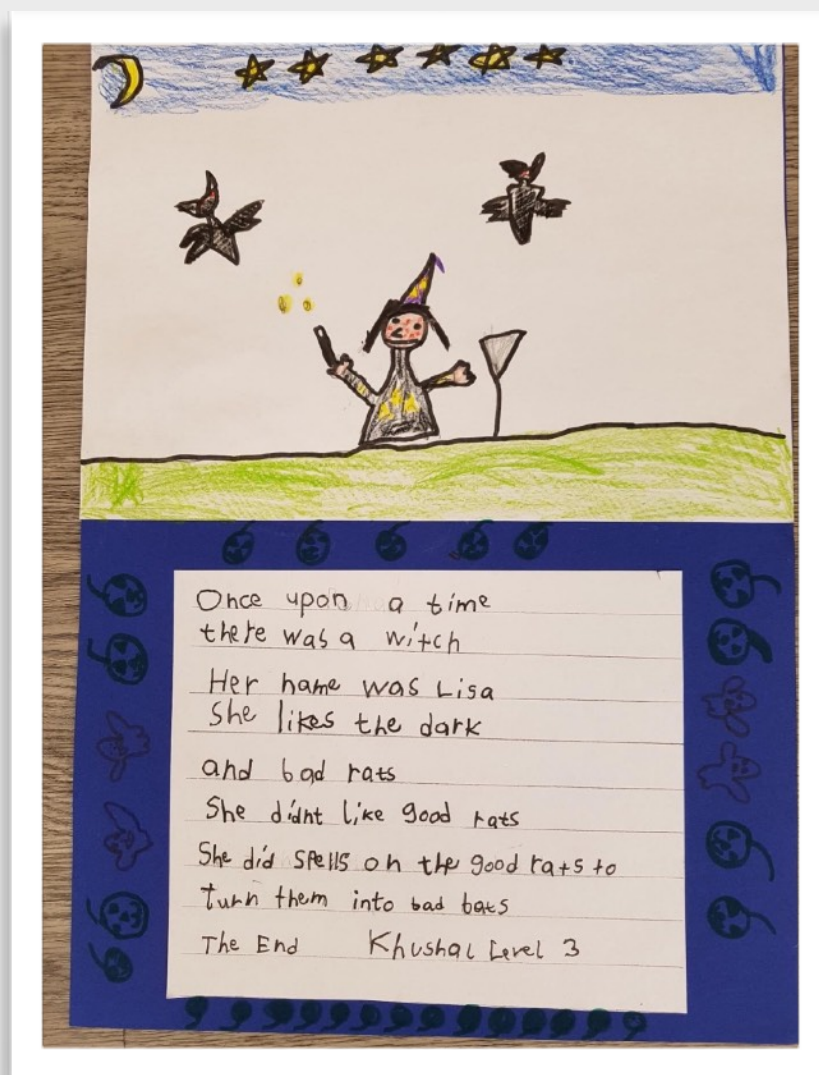 Once upon a time
there was a witch
Her name was Lisa
She likes the dark
and bad rats
She didnt like good rats
She did spells on the good rats to
turn them into bad bats
The End Khushal Level 3